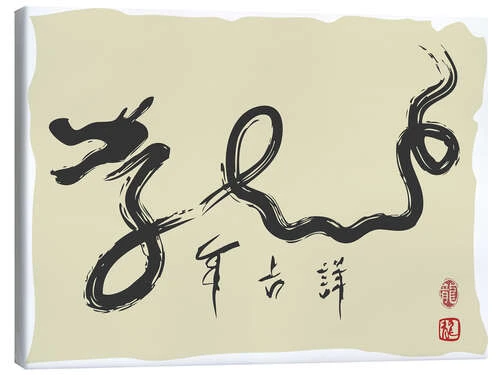 年吉祥
龍